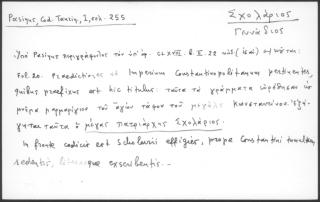 Pasinus, Cod. Taurin, I, σελ. 255
Σχολάριος
Γεννάδιος
Ὑπὸ Pasinus περιγράφεται τὸν ὑπ' ἀρ. CLXVII. b. II. 22
Fol. 20. Praedictiones ad Imperium Constantinopolitanum pertinentes,
quibus praefixus est hic titulus: ταῦτα τὰ γράμματα εὑρέθησαν εἰς
μνῆμα μαρμαρίνου τοῦ ἁγίου τάφου τοῦ μεγάλου Κωνσταντίνου. Ἐξη-
γεῖται ταῦτα ὁ μέγας πατριάρχης Σχολάριος.
In fronte codicis est Scholarii effigies, prope Constantini tumulum
sedentis, que exscribentis.-